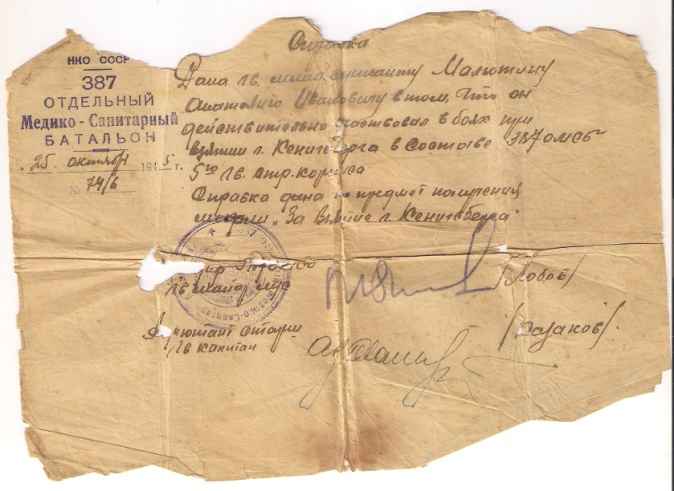 НКО СССР
387
ОТДЕЛЬНЫЙ
Медико - Санитарный
БАТАЛЬОН
25 октября 1945.
№ 74/6
Справка
Дана гв. сержанту Малютину
Анатолию Ивановичу в том, что он
действительно участвовал в боях при
взятии г. Кенигсберга в составе 387 ОМСБ
5го гв. стр. корпуса
Справка дана на предмет получения
медали „За взятие г. Кенигсберга"
гв майор м/с
/Лобов/
Адъютант старш.
гв капитан
/Казаков/.